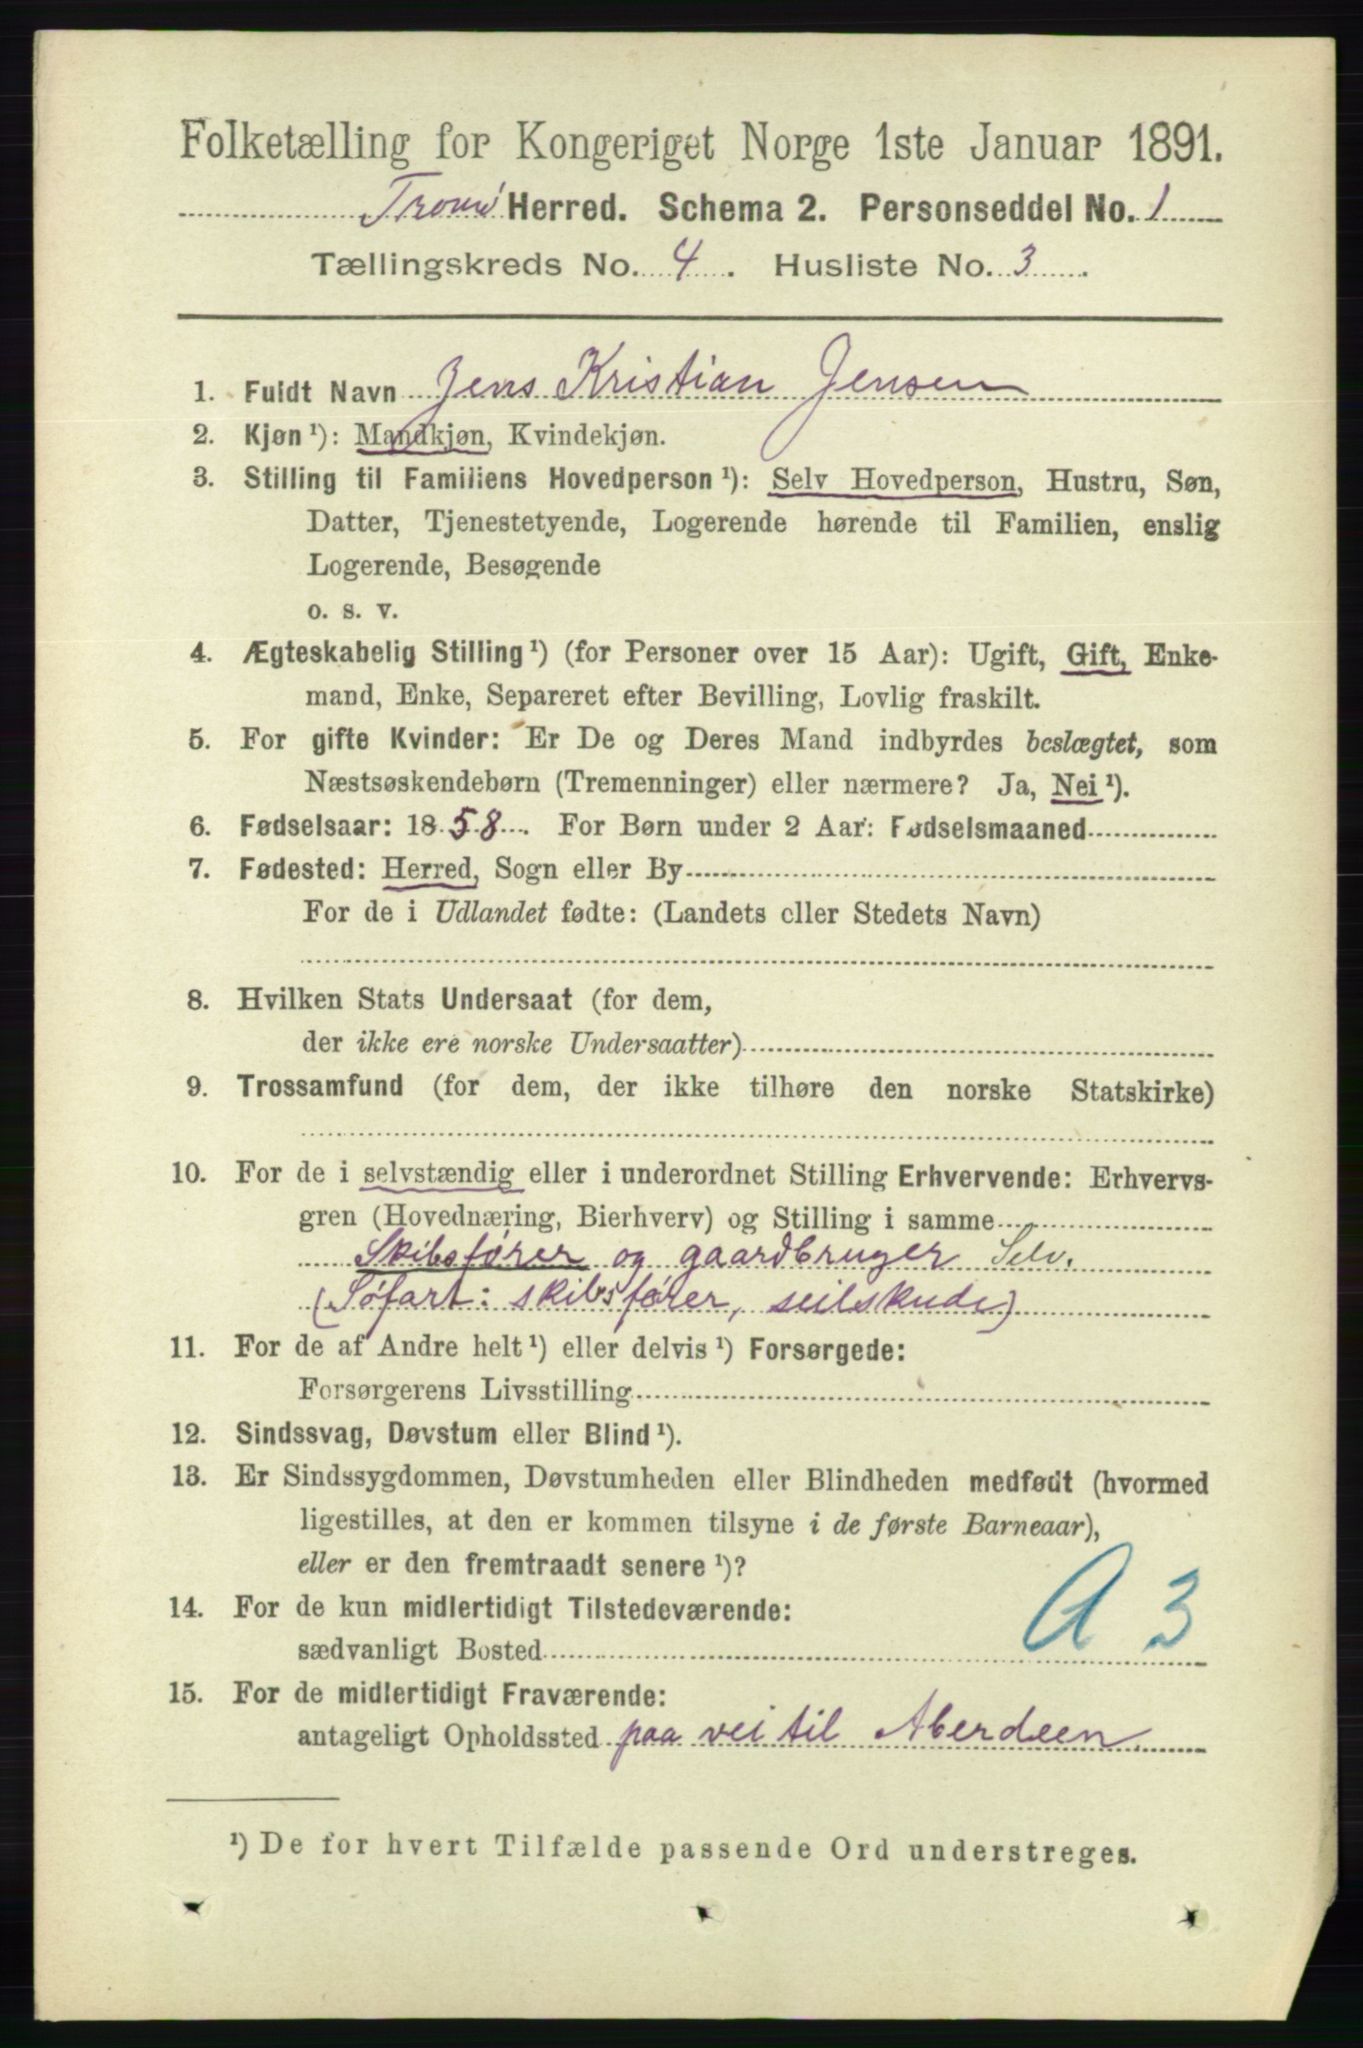 Folketælling for Kongeriget Norge 1ste Januar 1891.
Tromø Herred. Schema 2. Personseddel No. 1
Tællingskreds No. 4. Husliste No. 3.
1. Fuldt Navn Jens Kristian Jensen
2. Kjøn ¹): Mandkjøn, Kvindekjøn.
3. Stilling til Familiens Hovedperson ¹): Selv Hovedperson, Hustru, Søn,
Datter, Tjenestetyende, Logerende hørende til Familien, enslig
Logerende, Besøgende
o. s. v.
4. Ægteskabelig Stilling ¹) (for Personer over 15 Aar): Ugift, Gift, Enke-
mand, Enke, Separeret efter Bevilling, Lovlig fraskilt.
5. For gifte Kvinder: Er De og Deres Mand indbyrdes beslægtet, som
Næstsøskendebørn (Tremenninger) eller nærmere? Ja, Nei ¹).
6. Fødselsaar: 1858. For Børn under 2 Aar: Fødselsmaaned
7. Fødested: Herred, Sogn eller By
For de i Udlandet fødte: (Landets eller Stedets Navn)
8. Hvilken Stats Undersaat (for dem,
der ikke ere norske Undersaatter)
9. Trossamfund (for dem, der ikke tilhøre den norske Statskirke)
10. For de i selvstændig eller i underordnet Stilling Erhvervende: Erhvervs-
gren (Hovednæring, Bierhverv) og Stilling i samme
Skibsfører og gaardbruger Selv.
(Søfart: skibsfører, seilskude)
11. For de af Andre helt ¹) eller delvis ¹) Forsørgede:
Forsørgerens Livsstilling
12. Sindssvag, Døvstum eller Blind ¹).
13. Er Sindssygdommen, Døvstumheden eller Blindheden medfødt (hvormed
ligestilles, at den er kommen tilsyne i de første Barneaar),
eller er den fremtraadt senere ¹)?
14. For de kun midlertidigt Tilstedeværende:
sædvanligt Bosted
A 3
15. For de midlertidigt Fraværende:
antageligt Opholdssted paa vei til Aberdeen
¹) De for hvert Tilfælde passende Ord understreges.